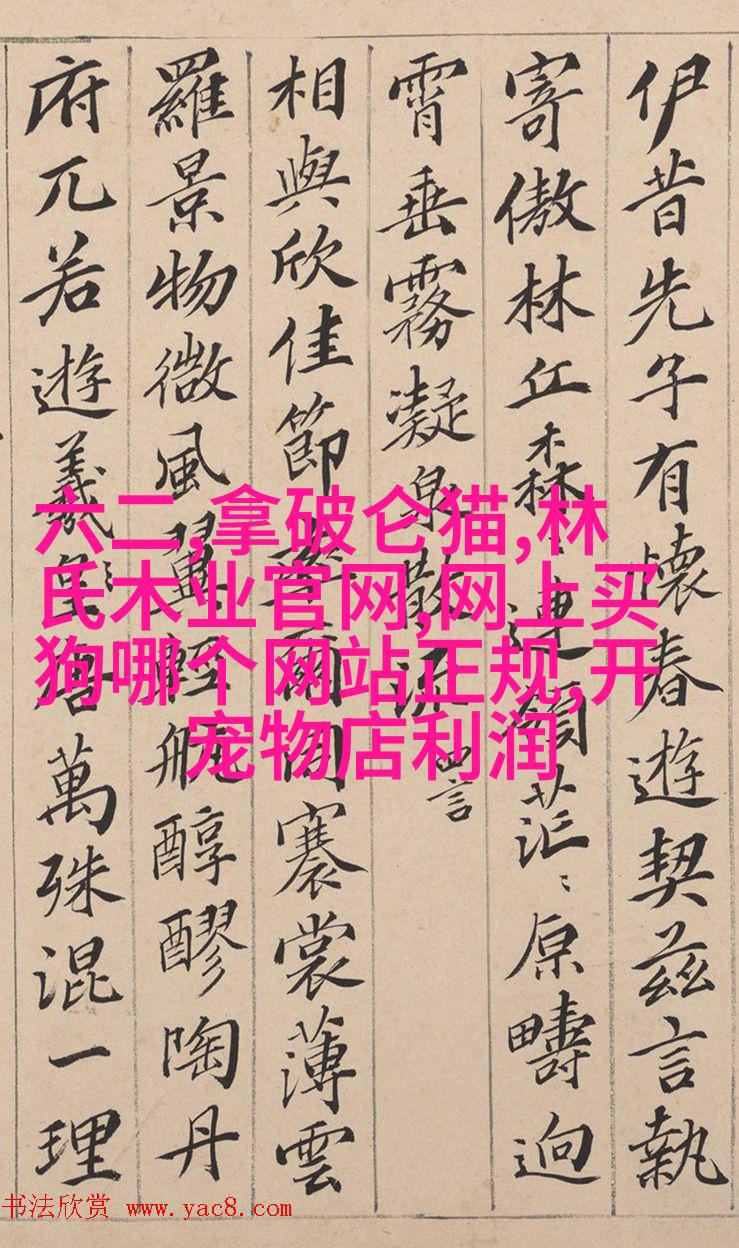 伊昔先子有懷春遊契茲言執
寄傲林丘森〻連領茫〻原疇逈
霄垂霧凝泉散流 四言
相與欣佳節率爾同褰裳薄雲
羅景物微風翼輕航醇醪陶丹
府兀若遊羲唐萬殊混一理
六二,拿破仑猫,林
氏木业官网,网上买
狗哪个网站正规,开
宠物店利润
书法欣赏 www.yac8.com